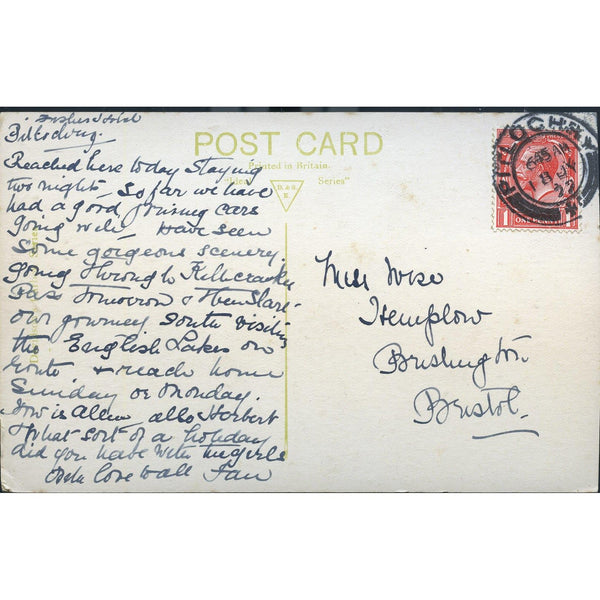 Fishers Hotel
Pitlochry.
Reached here today staying
two nights So far we have
had a good journey cars
going well Have seen
Some gorgeous scenery.
Going through Killicrankie
Pass Tomorrow & then Start
our journey South visiting
the English Lakes on
route & reach home
Sunday or Monday.
How is Allen also Herbert
What sort of a holiday
did you have with the girls
With love to all Fan
POST CARD
Printed in Britain.
Series"
D. & S.
K.
PITLOCHRY
ONE PENNY
Miss Wise
Hemplow
Brislington
Bristol.